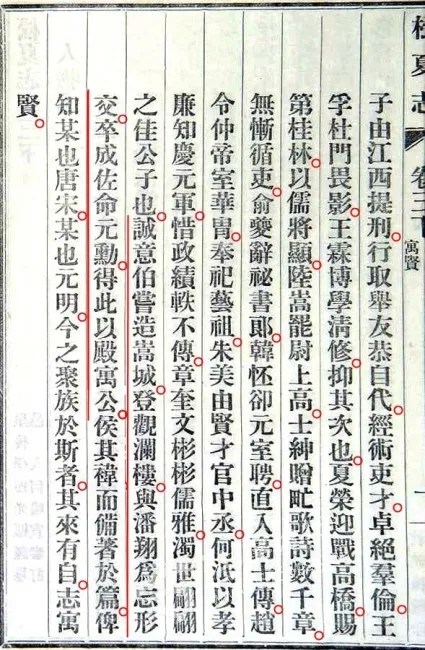 檇夏志 卷三十 寓賢 一
子由江西提刑行取舉友恭自代經術吏才卓絕羣倫王
孚杜門畏影王霖博學淸修抑其次也夏榮迎戰高橋賜
第桂林以儒將顯陸嵩罷尉上高士紳贈眡歌詩數千章
無慚循吏俞夔辭祕書郎韓怌卻元室聘直入高士傳趙
令仲帝室華胄奉祀藝祖朱美由賢才官中丞何泜以孝
廉知慶元軍惜政績軼不傳章奎文彬彬儒雅濁世翩翩
之佳公子也誠意伯嘗造嵩城登觀瀾樓與潘翔爲忘形
交卒成佐命元勳得此以殿寓公侯其禕而備著於篇俾
知某也唐宋某也元明今之聚族於斯者其來有自志寓
賢